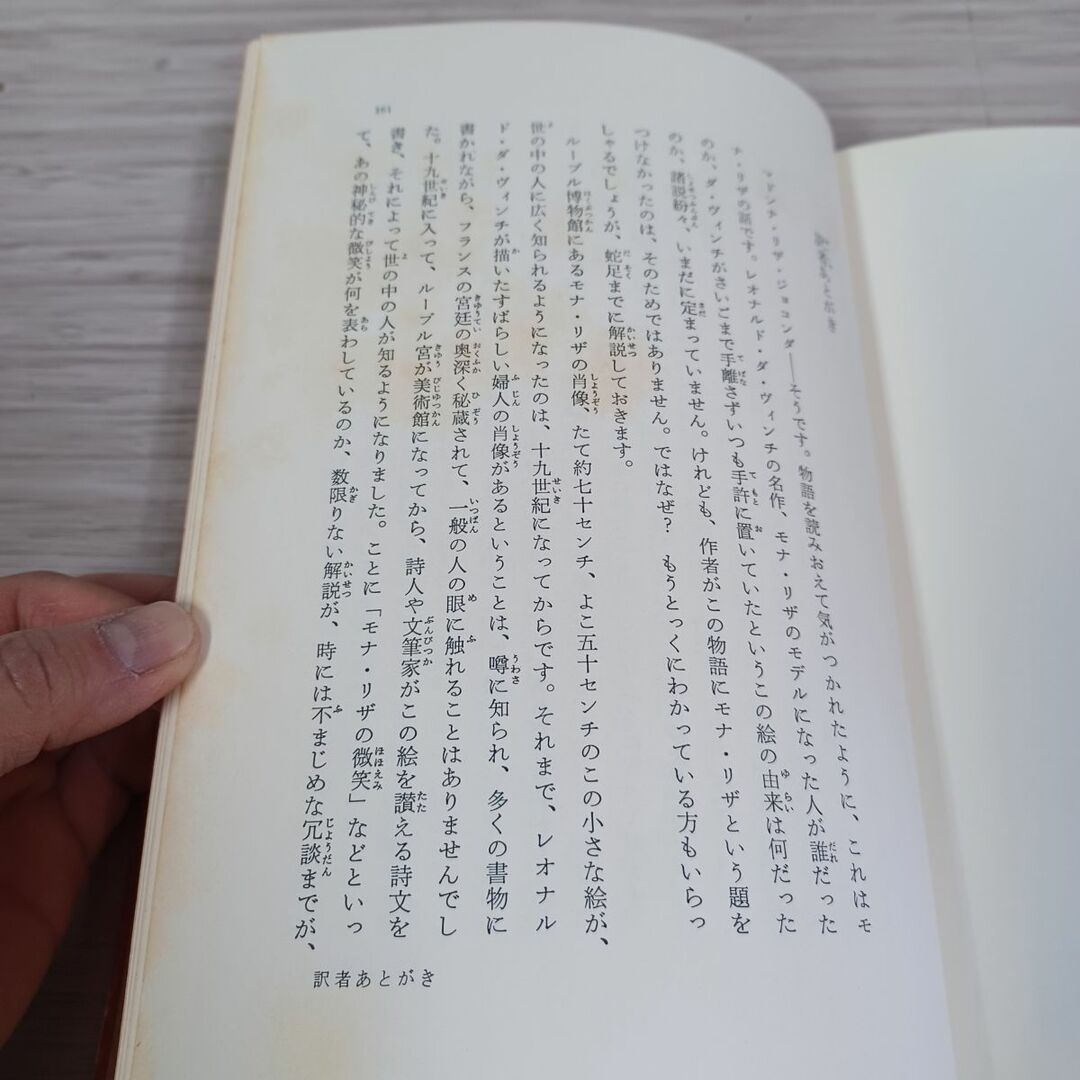 訳者あとがき
マドンナ・リザ・ジョコンダ――そうです。物語を読みおえて気がつかれたように、これはモ
ナ・リザの話です。レオナルド・ダ・ヴィンチの名作、モナ・リザのモデルになった人が誰だった
のか、ダ・ヴィンチがさいごまで手離さずいつも手許に置いていたというこの絵の由来は何だった
のか、諸説紛々、いまだに定まっていません。けれども、作者がこの物語にモナ・リザという題を
つけなかったのは、そのためではありません。ではなぜ? もうとっくにわかっている方もいらっ
しゃるでしょうが、蛇足までに解説しておきます。
ルーブル博物館にあるモナ・リザの肖像、たて約七十センチ、よこ五十センチのこの小さな絵が、
世の中の人に広く知られるようになったのは、十九世紀になってからです。それまで、レオナル
ド・ダ・ヴィンチが描いたすばらしい婦人の肖像があるということは、噂に知られ、多くの書物に
書かれながら、フランスの宮廷の奥深く秘蔵されて、一般の人の眼に触れることはありませんでし
た。十九世紀に入って、ルーブル宮が美術館になってから、詩人や文筆家がこの絵を讃える詩文を
書き、それによって世の中の人が知るようになりました。ことに「モナ・リザの微笑」などといっ
て、あの神秘的な微笑が何を表わしているのか、数限りない解説が、時には不まじめな冗談までが、
161
訳者あとがき